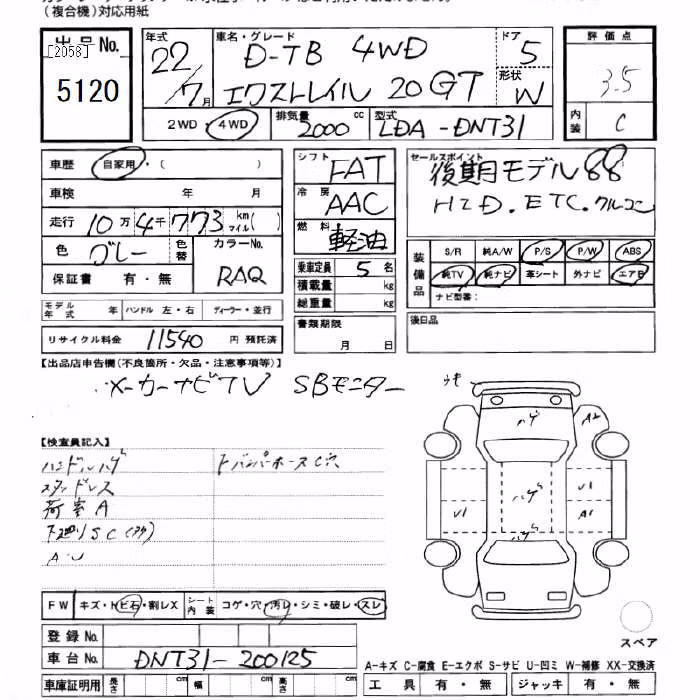 (複合機)対応用紙
出品No.
[2058]
5120
年式 22/7月
車名・グレード D-TB 4WD
エクストレイル 20GT
ドア 5
形状 W
評価点
3.5
内装 C
2WD・4WD
排気量 2000 cc
型式 LDA-DNT31
車歴 自家用・( )
車検 年 月
走行 10万4千773 km マイル( )
色 グレー
色替
カラーNo. RAQ
保証書 有・無
モデル年式 年
ハンドル 左・右
ディーラー・並行
リサイクル料金 11540 円 預託済
シフト FAT
冷房 AAC
燃料 軽油
乗車定員 5 名
積載量 kg
総重量 kg
書類期限
月 日
セールスポイント
後期モデル 88
HID. ETC. クルコン
装備品
S/R 純A/W P/S P/W ABS
純TV 純ナビ 革シート 外ナビ エアB
ナビ型番:
後日品
【出品店申告欄(不良箇所・欠品・注意事項等)】
メーカーナビTV SBモニター
【検査員記入】
ハンドルハゲ
下バンパーホースC穴
スタッドレス
荷室A
下廻りSC(アゲ)
A・U
ウキ
ハゲ
A2
ハゲ
U1
U1
A1
ハゲ
FW キズ・トビ石・割レX
シート内装 コゲ・穴・汚レ・シミ・破レ・スレ
登録No.
車台No. DNT31-200125
車庫証明用 長さ cm 幅 cm 高さ cm
スペア
A-キズ C-腐食 E-エクボ S-サビ U-凹ミ W-補修 XX-交換済
工具 有・無 ジャッキ 有・無